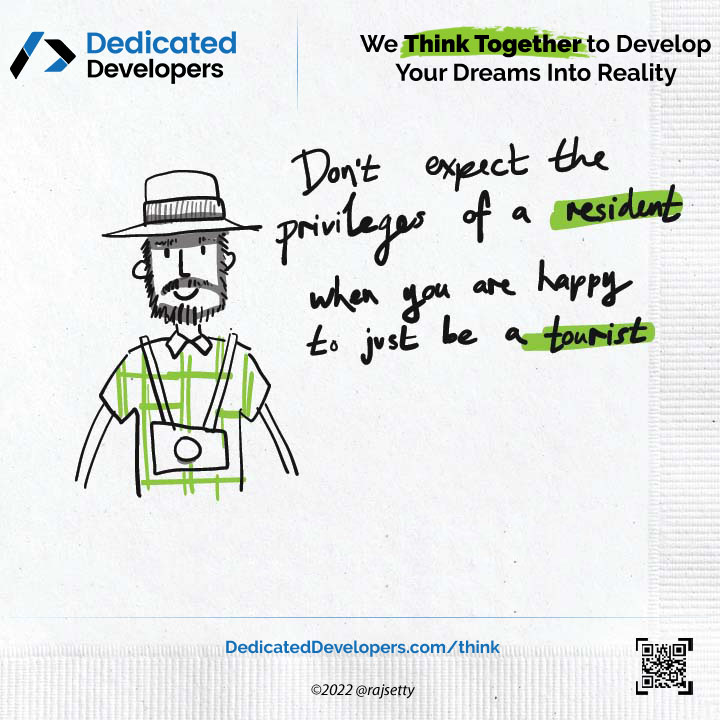 Dedicated
Developers
We Think Together to Develop
Your Dreams Into Reality
Don't expect the
privileges of a resident
when you are happy
to just be a tourist
DedicatedDevelopers.com/think
©2022 @rajsetty